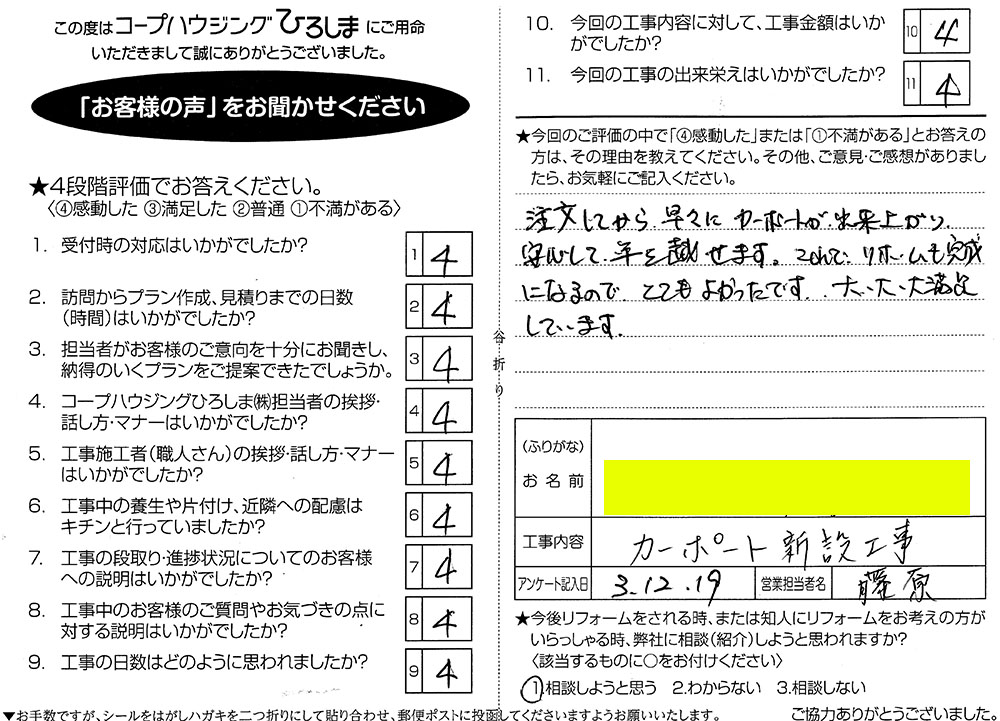 この度はコープハウジングひろしまにご用命
いただきまして誠にありがとうございました。
「お客様の声」をお聞かせください
★4段階評価でお答えください。
〈④感動した ③満足した ②普通 ①不満がある〉
1. 受付時の対応はいかがでしたか?
1 4
2. 訪問からプラン作成、見積りまでの日数
(時間)はいかがでしたか?
2 4
3. 担当者がお客様のご意向を十分にお聞きし、
納得のいくプランをご提案できたでしょうか。
3 4
4. コープハウジングひろしま㈱担当者の挨拶・
話し方・マナーはいかがでしたか?
4 4
5. 工事施工者(職人さん)の挨拶・話し方・マナー
はいかがでしたか?
5 4
6. 工事中の養生や片付け、近隣への配慮は
キチンと行っていましたか?
6 4
7. 工事の段取り・進捗状況についてのお客様
への説明はいかがでしたか?
7 4
8. 工事中のお客様のご質問やお気づきの点に
対する説明はいかがでしたか?
8 4
9. 工事の日数はどのように思われましたか?
9 4
▼お手数ですが、シールをはがしハガキを二つ折りにして貼り合わせ、郵便ポストに投函してくださいますようお願いいたします。
谷折り
10. 今回の工事内容に対して、工事金額はいか
がでしたか?
10 4
11. 今回の工事の出来栄えはいかがでしたか?
11 4
★今回のご評価の中で「④感動した」または「①不満がある」とお答えの
方は、その理由を教えてください。その他、ご意見・ご感想がありまし
たら、お気軽にご記入ください。
注文してから、早々に カーポートが、出来上がり、
安心して、年を越せます。これで、リホームも完成
になるので、とてもよかったです。大、大、大満足
しています。
(ふりがな)
お名前
工事内容 カーポート新設工事
アンケート記入日 3.12.19 営業担当者名 藤原
★今後リフォームをされる時、または知人にリフォームをお考えの方が
いらっしゃる時、弊社に相談(紹介)しようと思われますか?
〈該当するものに○をお付けください〉
1.相談しようと思う 2.わからない 3.相談しない
ご協力ありがとうございました。